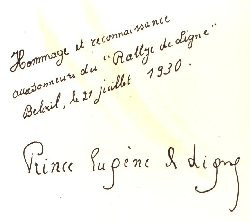 Hommage et reconnaissance
aux sonneurs du "Rallye de Ligne"
Belœil, le 21 juillet 1930.
Prince Eugène de Ligne